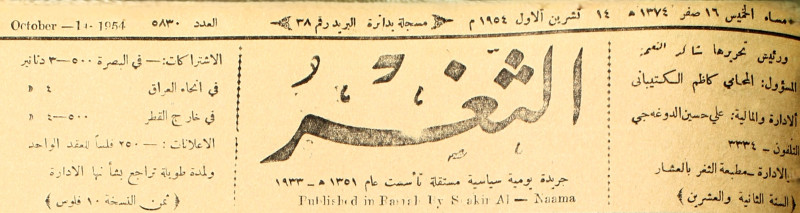 مساء الخميس ١٦ صفر ١٣٧٤ هـ ١٤ تشرين الاول ١٩٥٤ م
مسجلة بدائرة البريد رقم ٣٨
العدد ٥٨٣٠
October — 1954
ورئيس تحريرها شاكر النعمة
المسؤول: المحامي كاظم
الادارة والمالية: علي حسين الدوغه جي
التلفون — ٣٣٣٤
الادارة — مطبعة الثغر بالعشار
﴿ السنة الثانية والعشرين ﴾
الثغر
جريدة يومية سياسية مستقلة تأسست عام ١٣٥١ هـ — ١٩٣٣
Published in Basrah by Shakir Al — Naama
الاشتراكات: — في البصرة ٥٠٠—٣ دنانير
في انحاء العراق ٤ »
في خارج القطر ٥٠٠—٤ »
الاعلانات: — ٢٥٠ فلساً للعقد الواحد
ولمدة طويلة تراجع بشأنها الادارة
﴿ ثمن النسخة ١٠ فلوس ﴾